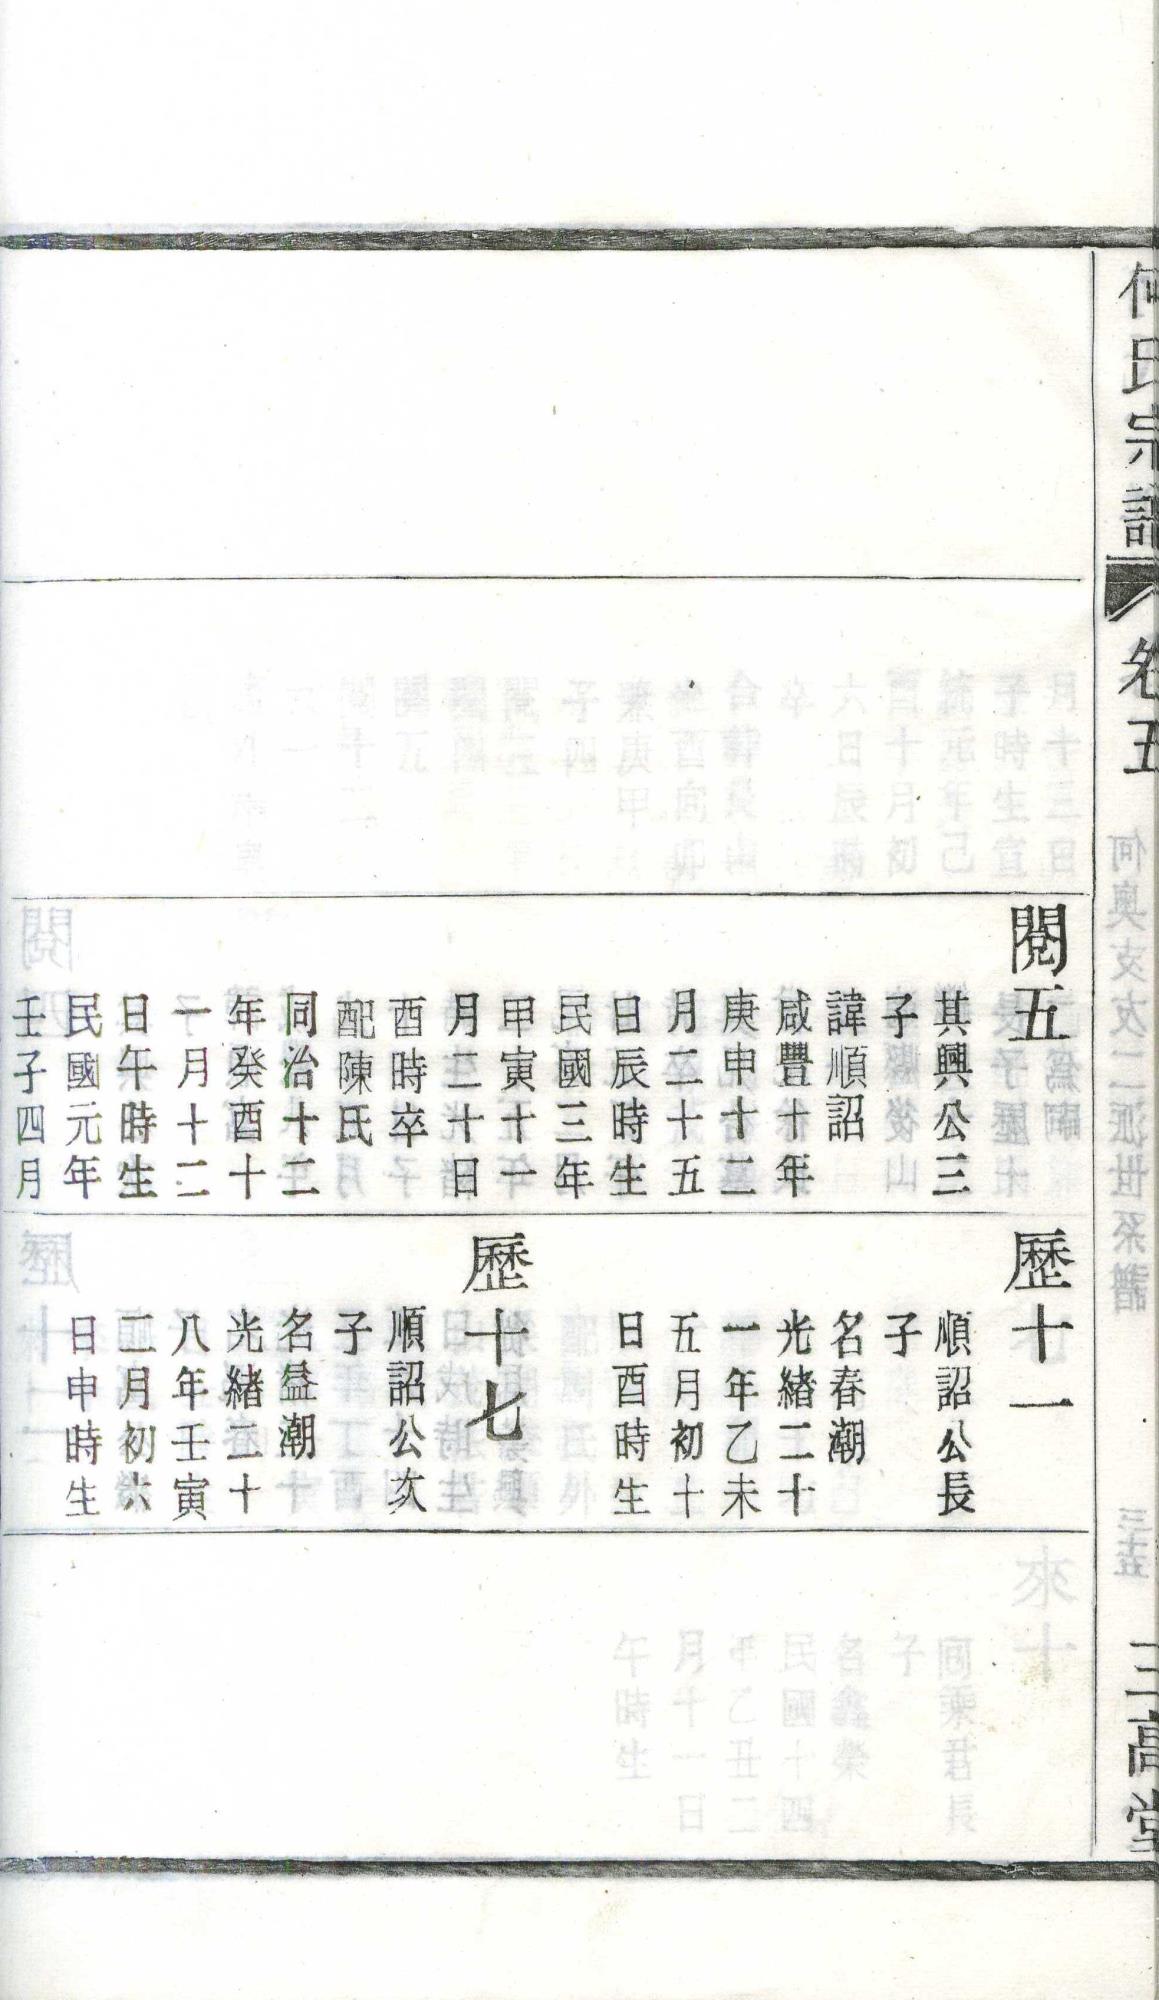 何氏宗譜
卷五
三高堂
閱五
其興公三
子
諱順詔
咸豐十年
庚申十二
月二十五
日辰時生
民國三年
甲寅十一
月二十日
酉時卒
配陳氏
同治十二
年癸酉十
一月十二
日午時生
民國元年
壬子四月
歷十一
順詔公長
子
名春潮
光緒二十
一年乙未
五月初十
日酉時生
歷十七
順詔公次
子
名益潮
光緒二十
八年壬寅
二月初六
日申時生